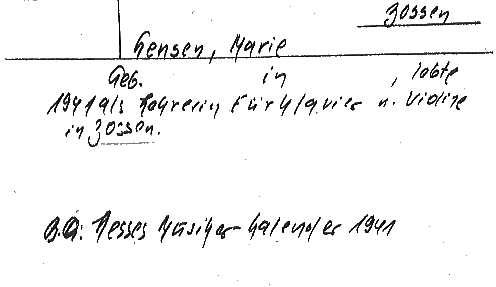 Zossen
Hensen, Marie
Geb. in , lebte
1941 als Lehrerin für Klavier u. Violine
in Zossen.
B.A: Hesses Musiker-Kalender 1941